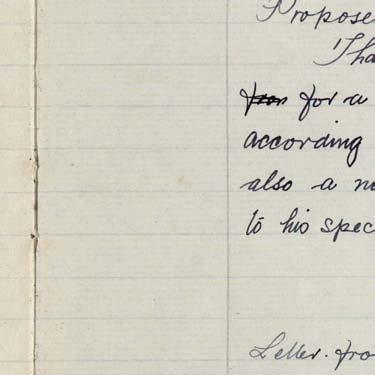 Propose
Tha
for for a
according
also a n
to his spec
Letter. fro